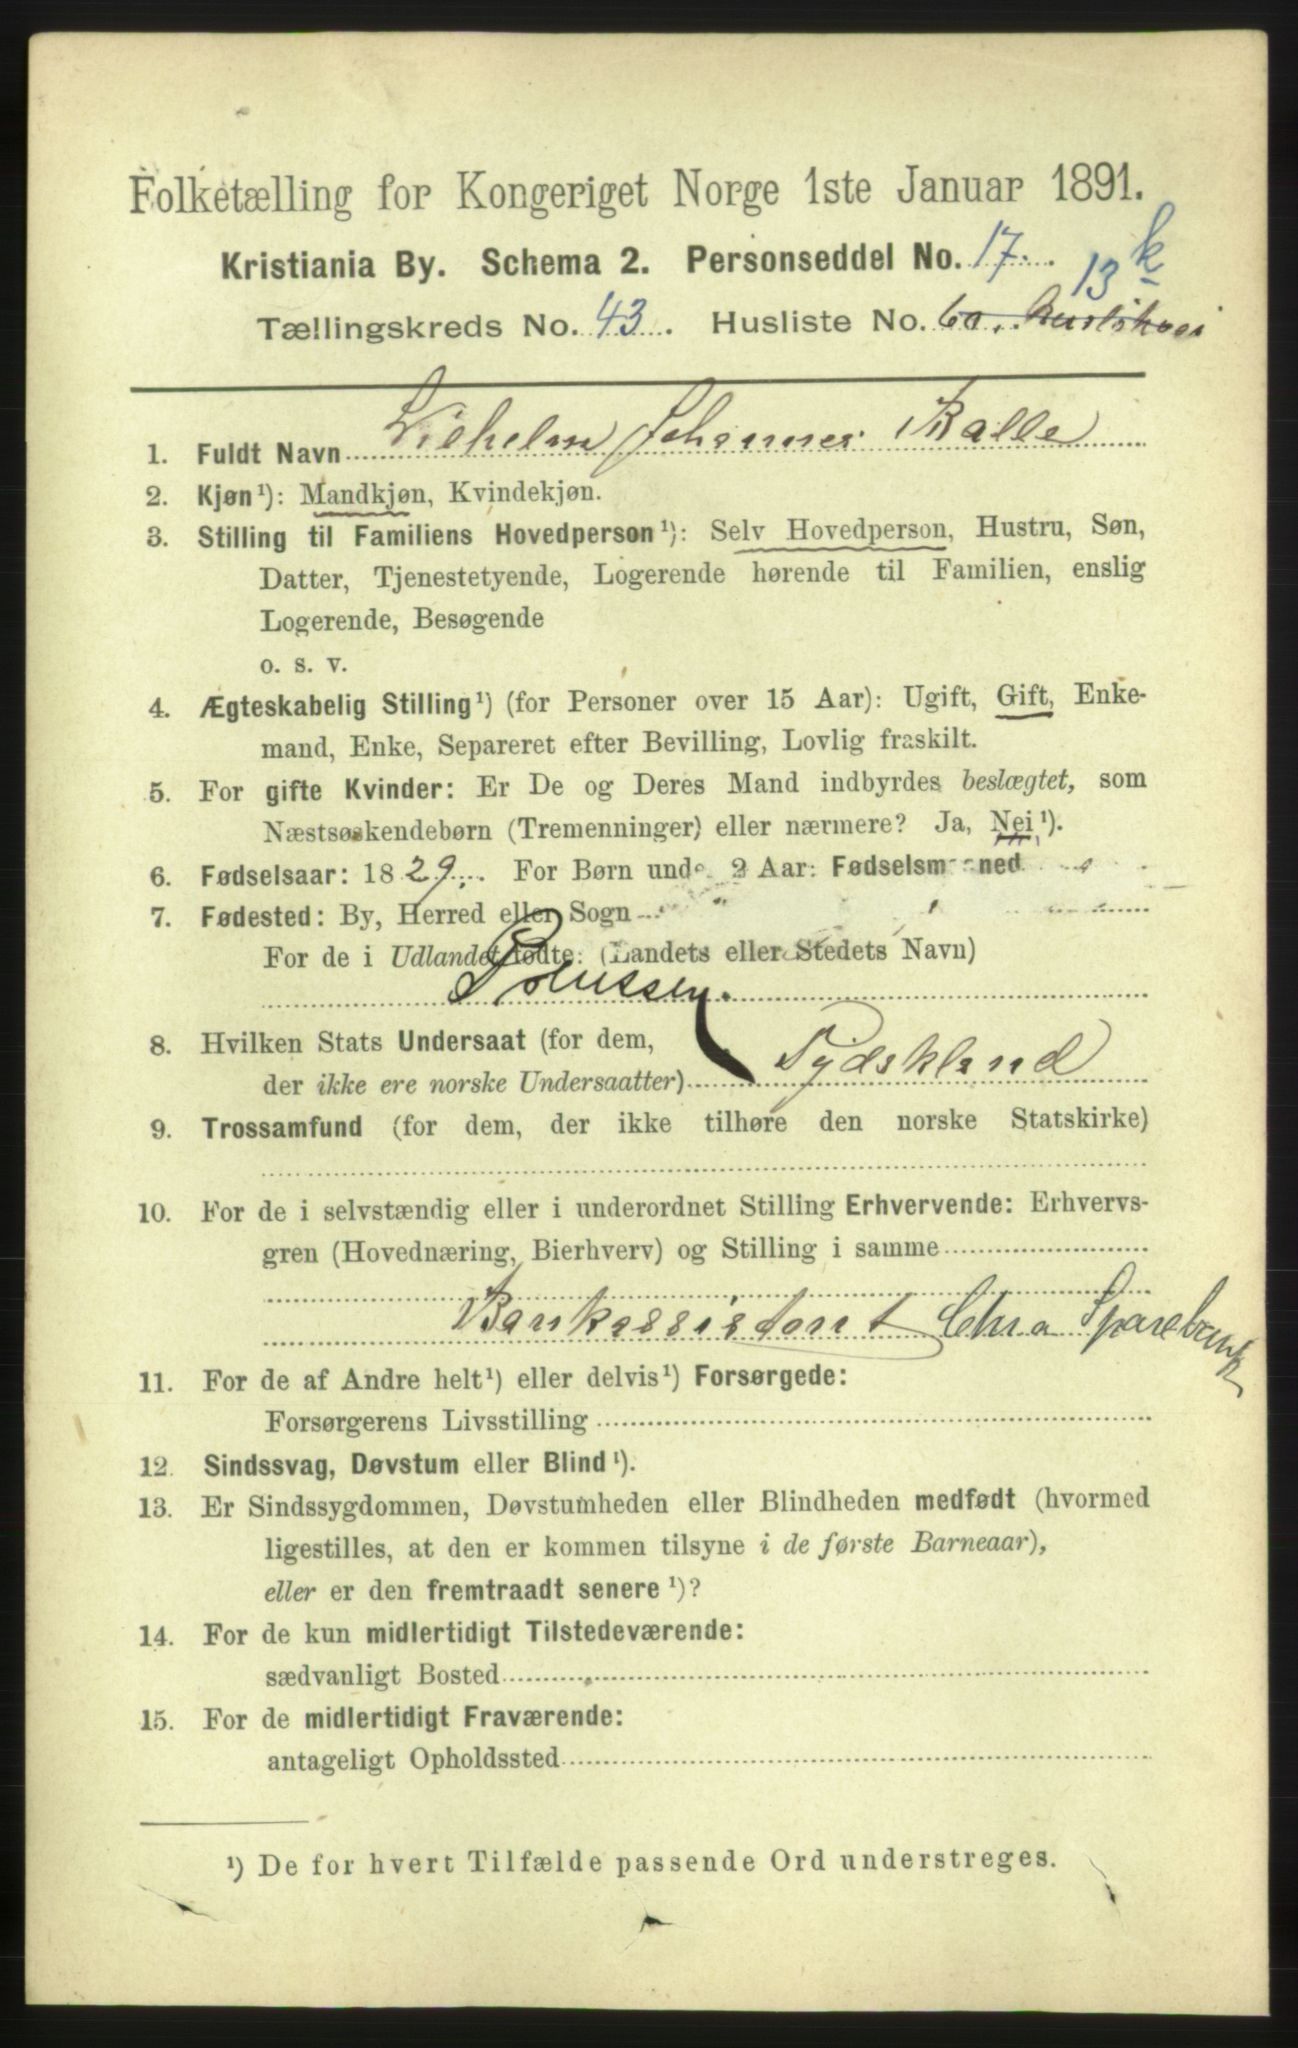 Folketælling for Kongeriget Norge 1ste Januar 1891.
Kristiania By. Schema 2. Personseddel No. 17.
13 k
Tællingskreds No. 43. Husliste No. 60.
1. Fuldt Navn Vilhelm Johannes Balle
2. Kjøn¹): Mandkjøn, Kvindekjøn.
3. Stilling til Familiens Hovedperson¹): Selv Hovedperson, Hustru, Søn,
Datter, Tjenestetyende, Logerende hørende til Familien, enslig
Logerende, Besøgende
o. s. v.
4. Ægteskabelig Stilling¹) (for Personer over 15 Aar): Ugift, Gift, Enke-
mand, Enke, Separeret efter Bevilling, Lovlig fraskilt.
5. For gifte Kvinder: Er De og Deres Mand indbyrdes beslægtet, som
Næstsøskendebørn (Tremenninger) eller nærmere? Ja, Nei¹).
6. Fødselsaar: 1829. For Børn under 2 Aar: Fødselsmaaned
7. Fødested: By, Herred eller Sogn
For de i Udlandet fødte: (Landets eller Stedets Navn)
Preussen.
8. Hvilken Stats Undersaat (for dem,
der ikke ere norske Undersaatter) Tydskland
9. Trossamfund (for dem, der ikke tilhøre den norske Statskirke)
10. For de i selvstændig eller i underordnet Stilling Erhvervende: Erhvervs-
gren (Hovednæring, Bierhverv) og Stilling i samme
Bankassistent Chra Sparebank
11. For de af Andre helt¹) eller delvis¹) Forsørgede:
Forsørgerens Livsstilling
12. Sindssvag, Døvstum eller Blind¹).
13. Er Sindssygdommen, Døvstumheden eller Blindheden medfødt (hvormed
ligestilles, at den er kommen tilsyne i de første Barneaar),
eller er den fremtraadt senere¹)?
14. For de kun midlertidigt Tilstedeværende:
sædvanligt Bosted
15. For de midlertidigt Fraværende:
antageligt Opholdssted
¹) De for hvert Tilfælde passende Ord understreges.